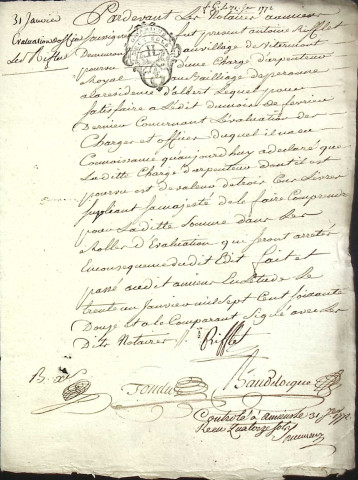 31 Janvier
Evaluation d'office
Pardevant Les Notaires a amiens
soussignez fut present antoine Rifflet
Demeurant au village de
pourvu d'une Charge d'arpenteur
Royal au Bailliage de peronne
a la residence d'albert Lequel pour
satisfaire a L'edit du mois de fevrier
Dernier Concernant L'evaluation des
Charges et offices duquel il a eu
Connoissance qu'aujourd'huy a declaré que
Laditte Charge d'arpenteur dont il est
pourvu est de valeur de trois Cens Livres
supliant sa majesté de le faire Comprendre
pour Laditte somme dans Les
Rolles d'Evaluation qui seront arretés
En consequence dudit Edit fait et
passé audit amiens En L'Etude Le
trente un Janvier mil sept Cent soixante
Douze et a le Comparant signé avec Les
Dits Notaires
Rifflet
Fondu Baudelocque
Controlé à amiens le 31 Jer 1772
Recu quatorze sols